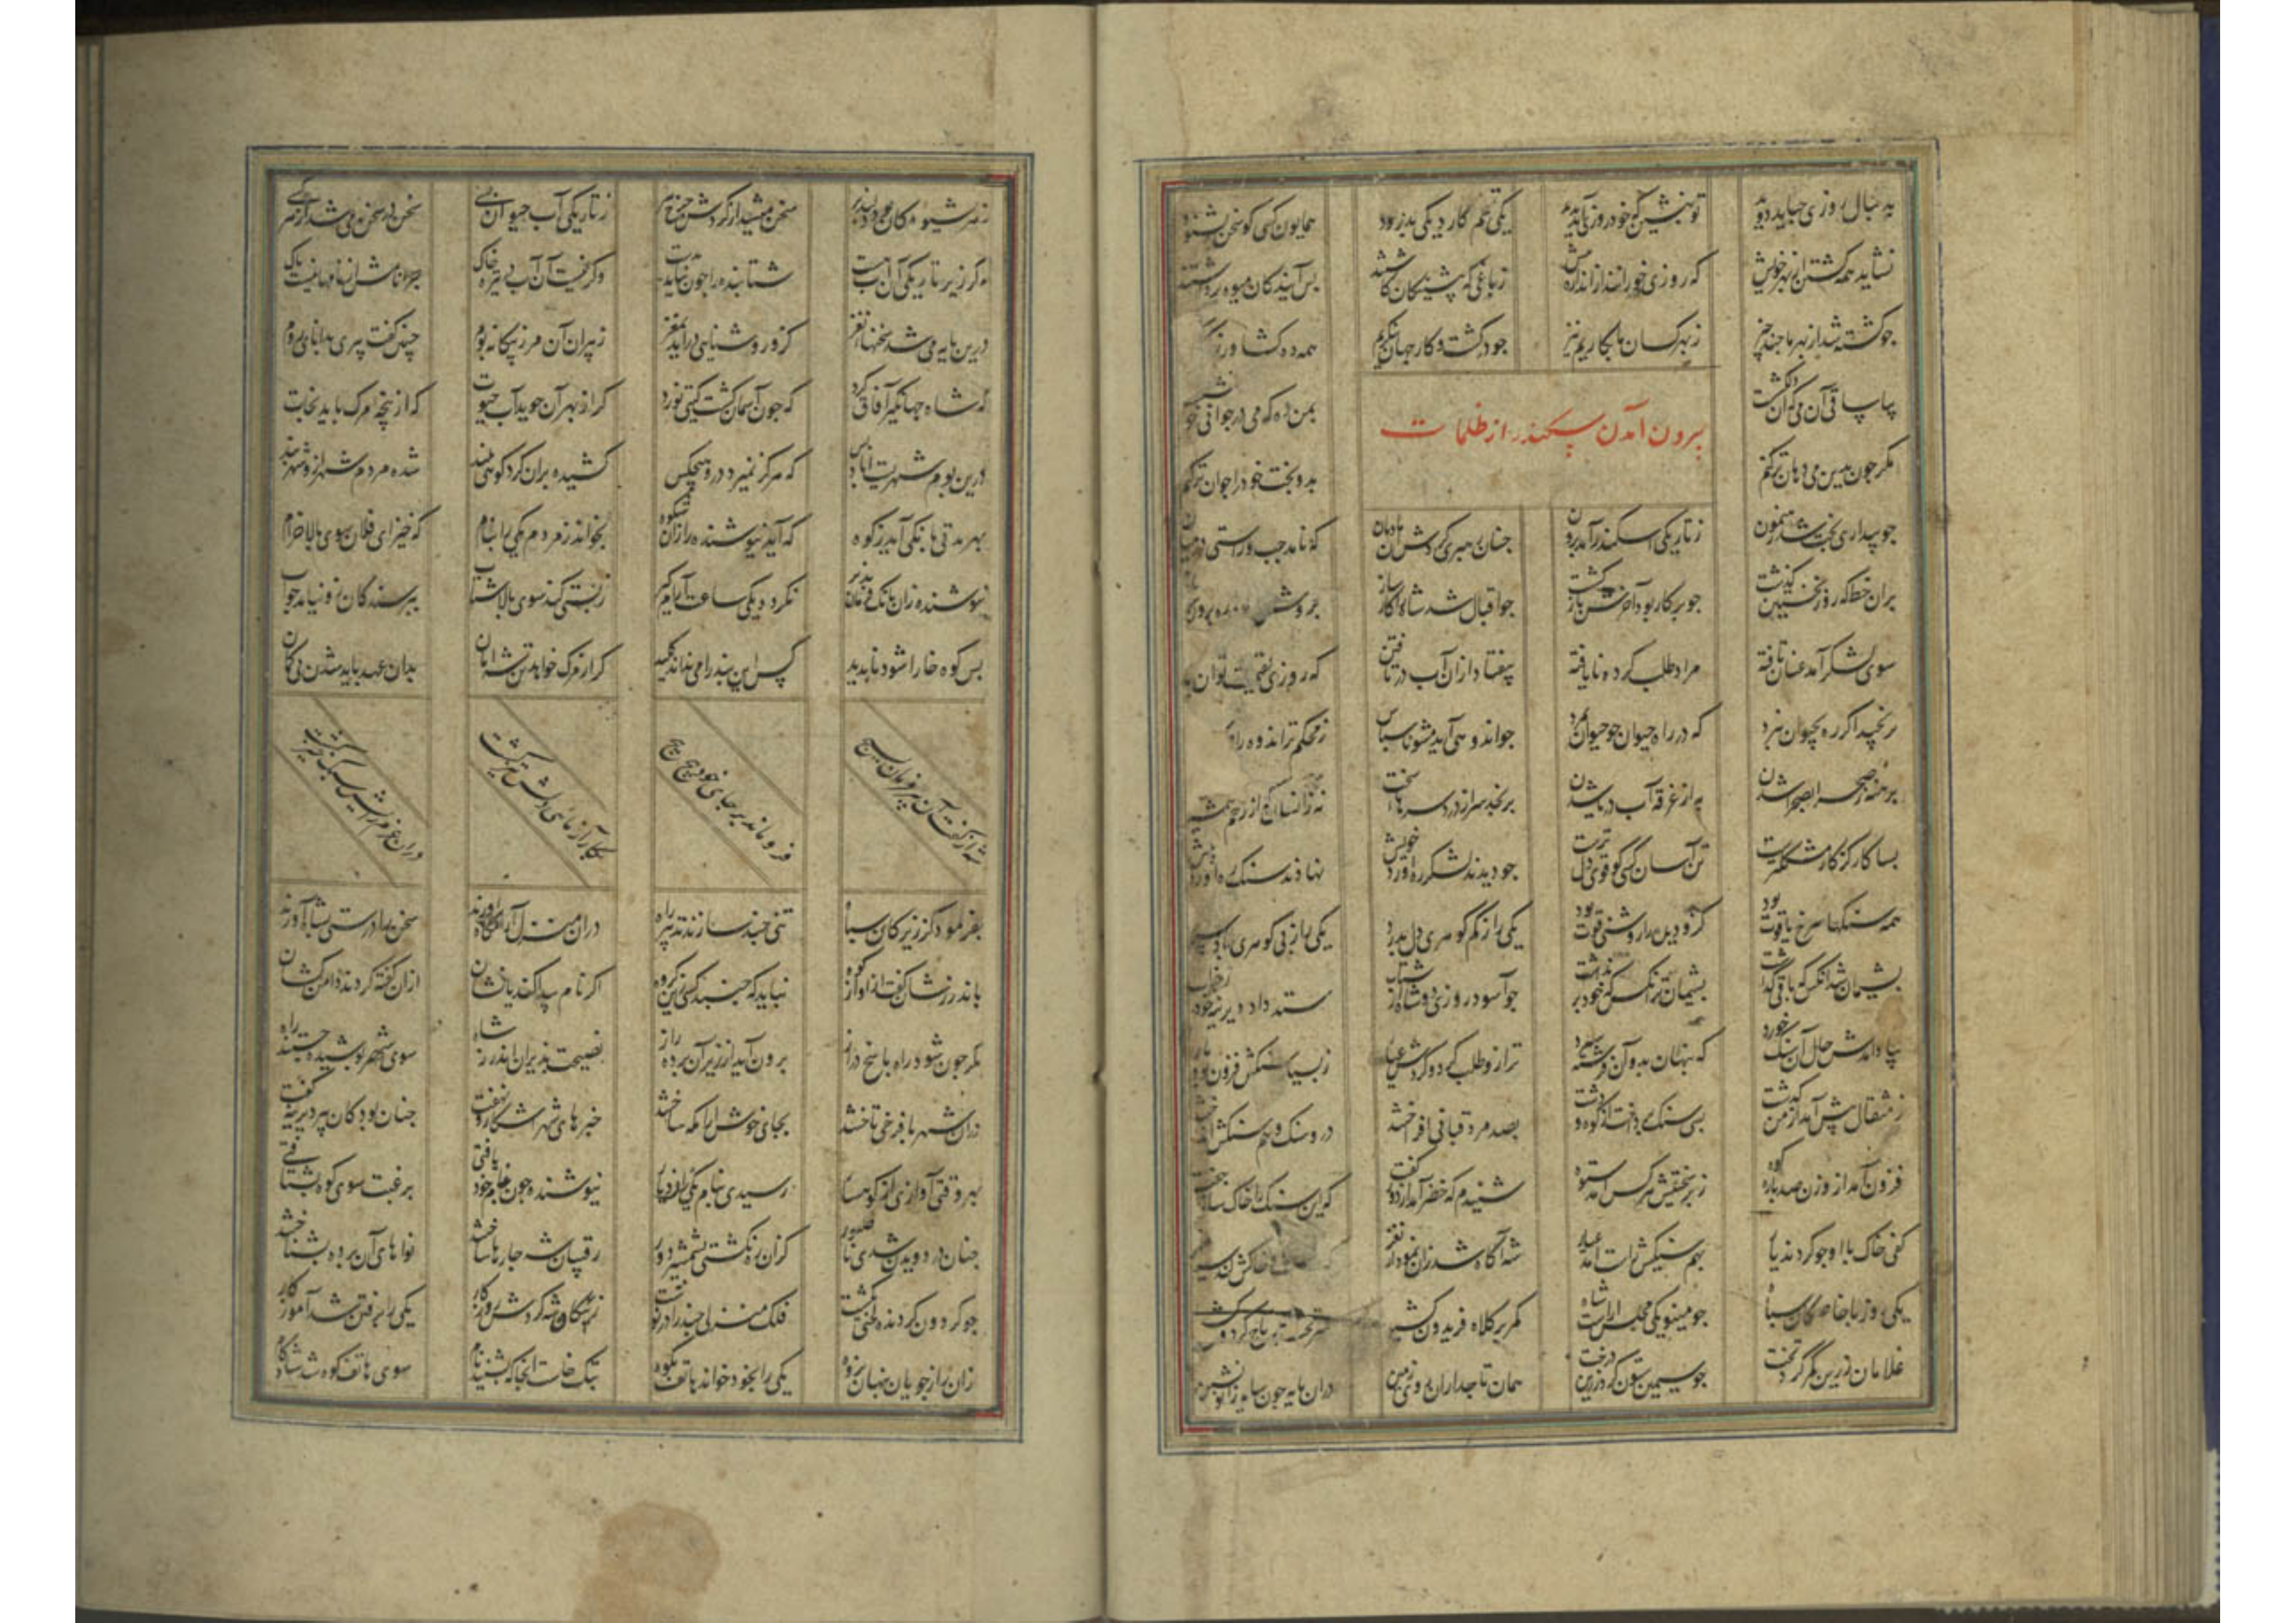 به دنبال روزی چه باید دوید تو بنشین که خود روزی آید پدید یکی تخم کارد یکی بدرود همایون کسی کو سخن بشنود
نشاید همه کشتن از بهر خویش که روزی خورانند از اندازه بیش ز باغی که پیشینگان کاشتند پس آیندگان میوه برداشتند
جو کشته شد از بهر ما جند جیز ز بهر کسان ما بکاریم نیز جو در کشت و کار جهان بنگریم همه ده کشاورز
بیا ساقی آن می که او دلکش است بمن ده که می در جوانی خوش است
مکر جون بدین می دهان تر کنم بدو بخت خود را جوان تر کنم
برون آمدن سکندر از ظلمات
جو بیداری بخت شد رهنمون ز تاریکی اسکندر آمد برون جنان رهبری کردش آن مادیان که نامد جب و راستی در میان
بران خط که روز نخستین گذشت جو پرکار بود آخرش بازگشت جو اقبال شد شاه را کارساز
سوی لشکر آمد عنان تافته مراد طلب کرده نایافته بیفتاد از آن آب در تافتن که روزی بقسمت توان یافتن
نرنجید اگر ره بحیوان نبرد که در راه حیوان جو حیوان نمرد جو اندوهی آید مشو ناسپاس ز محکم تر اندوه
برهنه ز صحرا بصحرا شدن به از غرقه آب دریا شدن برنجد سر از درد سرهای سخت نه زانسان که از زخم
بسا کار کز کار مشکلترست تن آسان کسی کو قوی دل ترست جو دیدند لشکر ره آورد خویش نهادند سنک ره آورد پیش
همه سنکها سرخ یاقوت بود کزو دیده را روشنی قوت بود یکی را ز کم گوهری دل بدرد یکی را ز بی گوهری باد سرد
پشیمان شد آنکس که باقی گذاشت پشیمان تر آنکس که خود برنداشت جو آسود روزی دو شاه از شتاب ستد داد دیرینه خود ز خواب
بیاد آمدش حال آن سنک خورد که پنهان بدو آن فرشته سپرد ترازو طلب کرد و کردش عیار ز بسیار سنکش فزون بود بار
ز مثقال پیش آمد از من گذشت بسی سنک برداشت از کوه و دشت بصد مرد قبانی افراختند درو سنک و هم سنکش انداختند
فزون آمد از وزن صد پاره کوه ز برسختنش هر کس آمد ستوه شنیدم که خضر آمد از دور گفت که این سنک را خاک سازند جفت
کفی خاک با او جو کردند یار بهم سنکیش راست آمد عیار شه آگاه شد زان نمودار نغز
یکی روز با خاصگان سپاه جو مینو یکی مجلس آراست شاه کمر بر کلاه فریدون کشید سر تخت بر تاج گردون کشید
غلامان زرین کمر گرد تخت جو سیمین ستون گرد زرین درخت همان تاجداران روی زمین دران پایه جون سایه زانو نشین
ز هر شیوه کان بود دلپذیر سخن میشد از گردش چرخ پیر ز تاریکی آب حیوان بسی سخن در سخن می شد از هر کسی
که گر زیر تاریکی آن آب هست شتابنده را جون نیاید بدست و گر نیست آن آب در تیره خاک جرا نامش از نامها نیست پاک
درین مایه می شد سخنها نغز کزو روشنایی درآید بمغز ز پیران آن مرز بیگانه بوم جنین گفت پیری بدانای روم
که شاه جهانگیر آفاق گرد که جون آسمان گشت گیتی نورد گر از بهر آن جوید آب حیات که از پنجه مرگ باید نجات
درین بوم شهریست آباد و بس که هرگز نمیرد درو هیچکس کشیده بران گرد کوهی بلند شده مردم شهر ازو شهربند
بهر مدتی بانکی آید ز کوه که آید نیوشنده را زان شکوه بخواند ز مردم یکی را بنام که خیز ای فلان سوی بالا خرام
نیوشنده زان بانک فرمان پذیر نگردد یکی ساعت آرام گیر ز پستی کند سوی بالا شتاب بپرسندگان زو نیاید جواب
پس کوه خارا شود ناپدید کس این بند را می نداند کلید گر از مرگ خواهد تن شه امان بدان عهد باید شدن بی گمان
شه از گفت آن پیر فرمان بسیج فرو ماند بر جای خود پیج پیج بکار آزمایی دلش تیز گشت
بفرمود کز زیرکان سپاه تنی جند سازند تدبیر راه دران منزل آرامگاه آورند سخن را درستی بشاه آورند
باندرزشان گفت از آواز کوه نباید که جنبد کسی زین گروه اگر نام پیدا کند یا نشان ازان گفته گردند دامن کشان
مگر جون شود راه پاسخ دراز برون آید از زیر آن پرده راز نصیحت پذیران اندرز شاه سوی شهر پوشیده جستند راه
دران شهر با فرخی تاختند بجای خوش آرامگه ساختند خبرهای شهر آشکار و نهفت جنان بود کان پیر دیرینه گفت
بهر وقتی آوازی از کوهسار رسیدی بنام یکی زان دیار نیوشنده جون نام خود یافتی برغبت سوی کوه بشتافتی
جنان در دویدن شدی ناصبور کزان ره نگشتی بشمشیر دور رقیبان شه جارها ساختند نواهای آن پرده بشناختند
جو گردون گردنده طی گشت فلک منزلی جند را در نوشت ز پیکان شه گردش روزگار یکی را برفتن شد آموزگار
زان رازجویان پنهان پژوه یکی را بخود خواند هاتف بکوه بتک خاست آنجا که بشنید نام سوی هاتف کوه شد شادکام